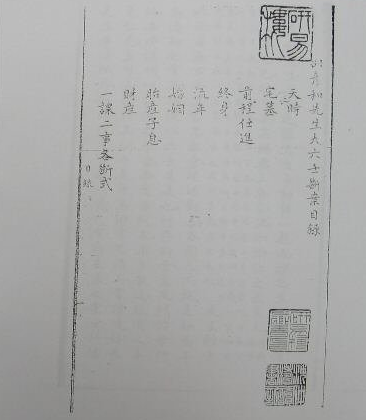 邵彥和先生大六壬斷案目錄
天時
宅墓
前程仕進
終身
流年
婚姻
胎產子息
財產
一課二事各斷式
目錄
研易樓